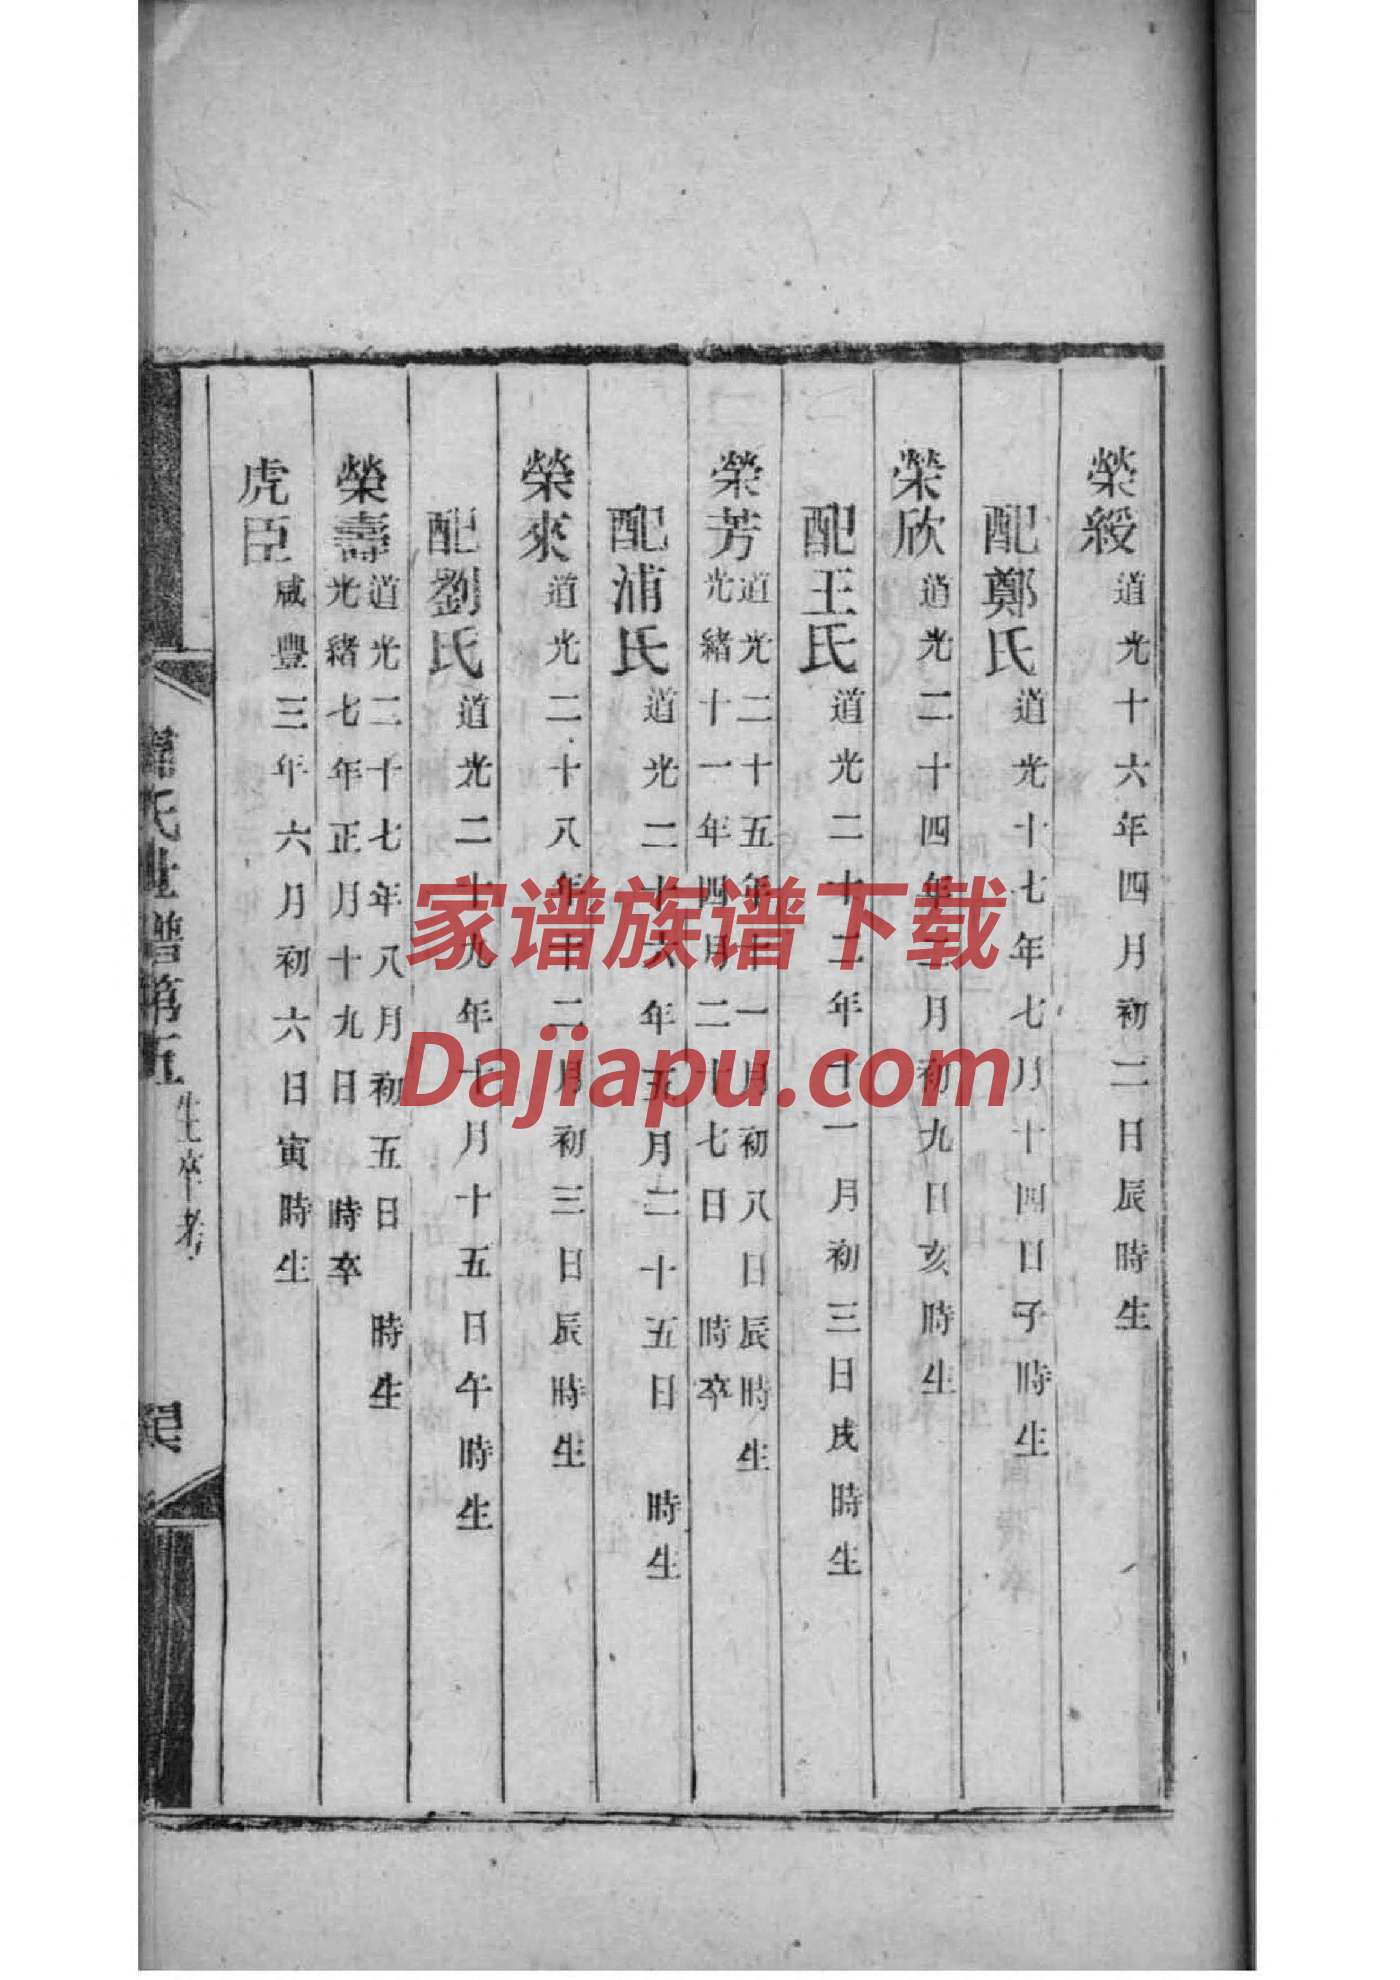 榮綬道光十六年四月初二日辰時生
配鄭氏道光十七年七月十四日子時生
榮欣道光二十四年二月初九日亥時生
配王氏道光二十二年十一月初三日戌時生
榮芳道光二十五年十一月初八日辰時生
光緒十一年四月二十七日 時卒
配浦氏道光二十六年五月二十五日 時生
榮來道光二十八年十二月初三日辰時生
配劉氏道光二十九年十月十五日午時生
榮壽道光二十七年八月初五日 時生
光緒七年正月十九日 時卒
虎臣咸豐三年六月初六日寅時生
氏世譜第五 生卒考
家谱族谱下载
Dajiapu.com